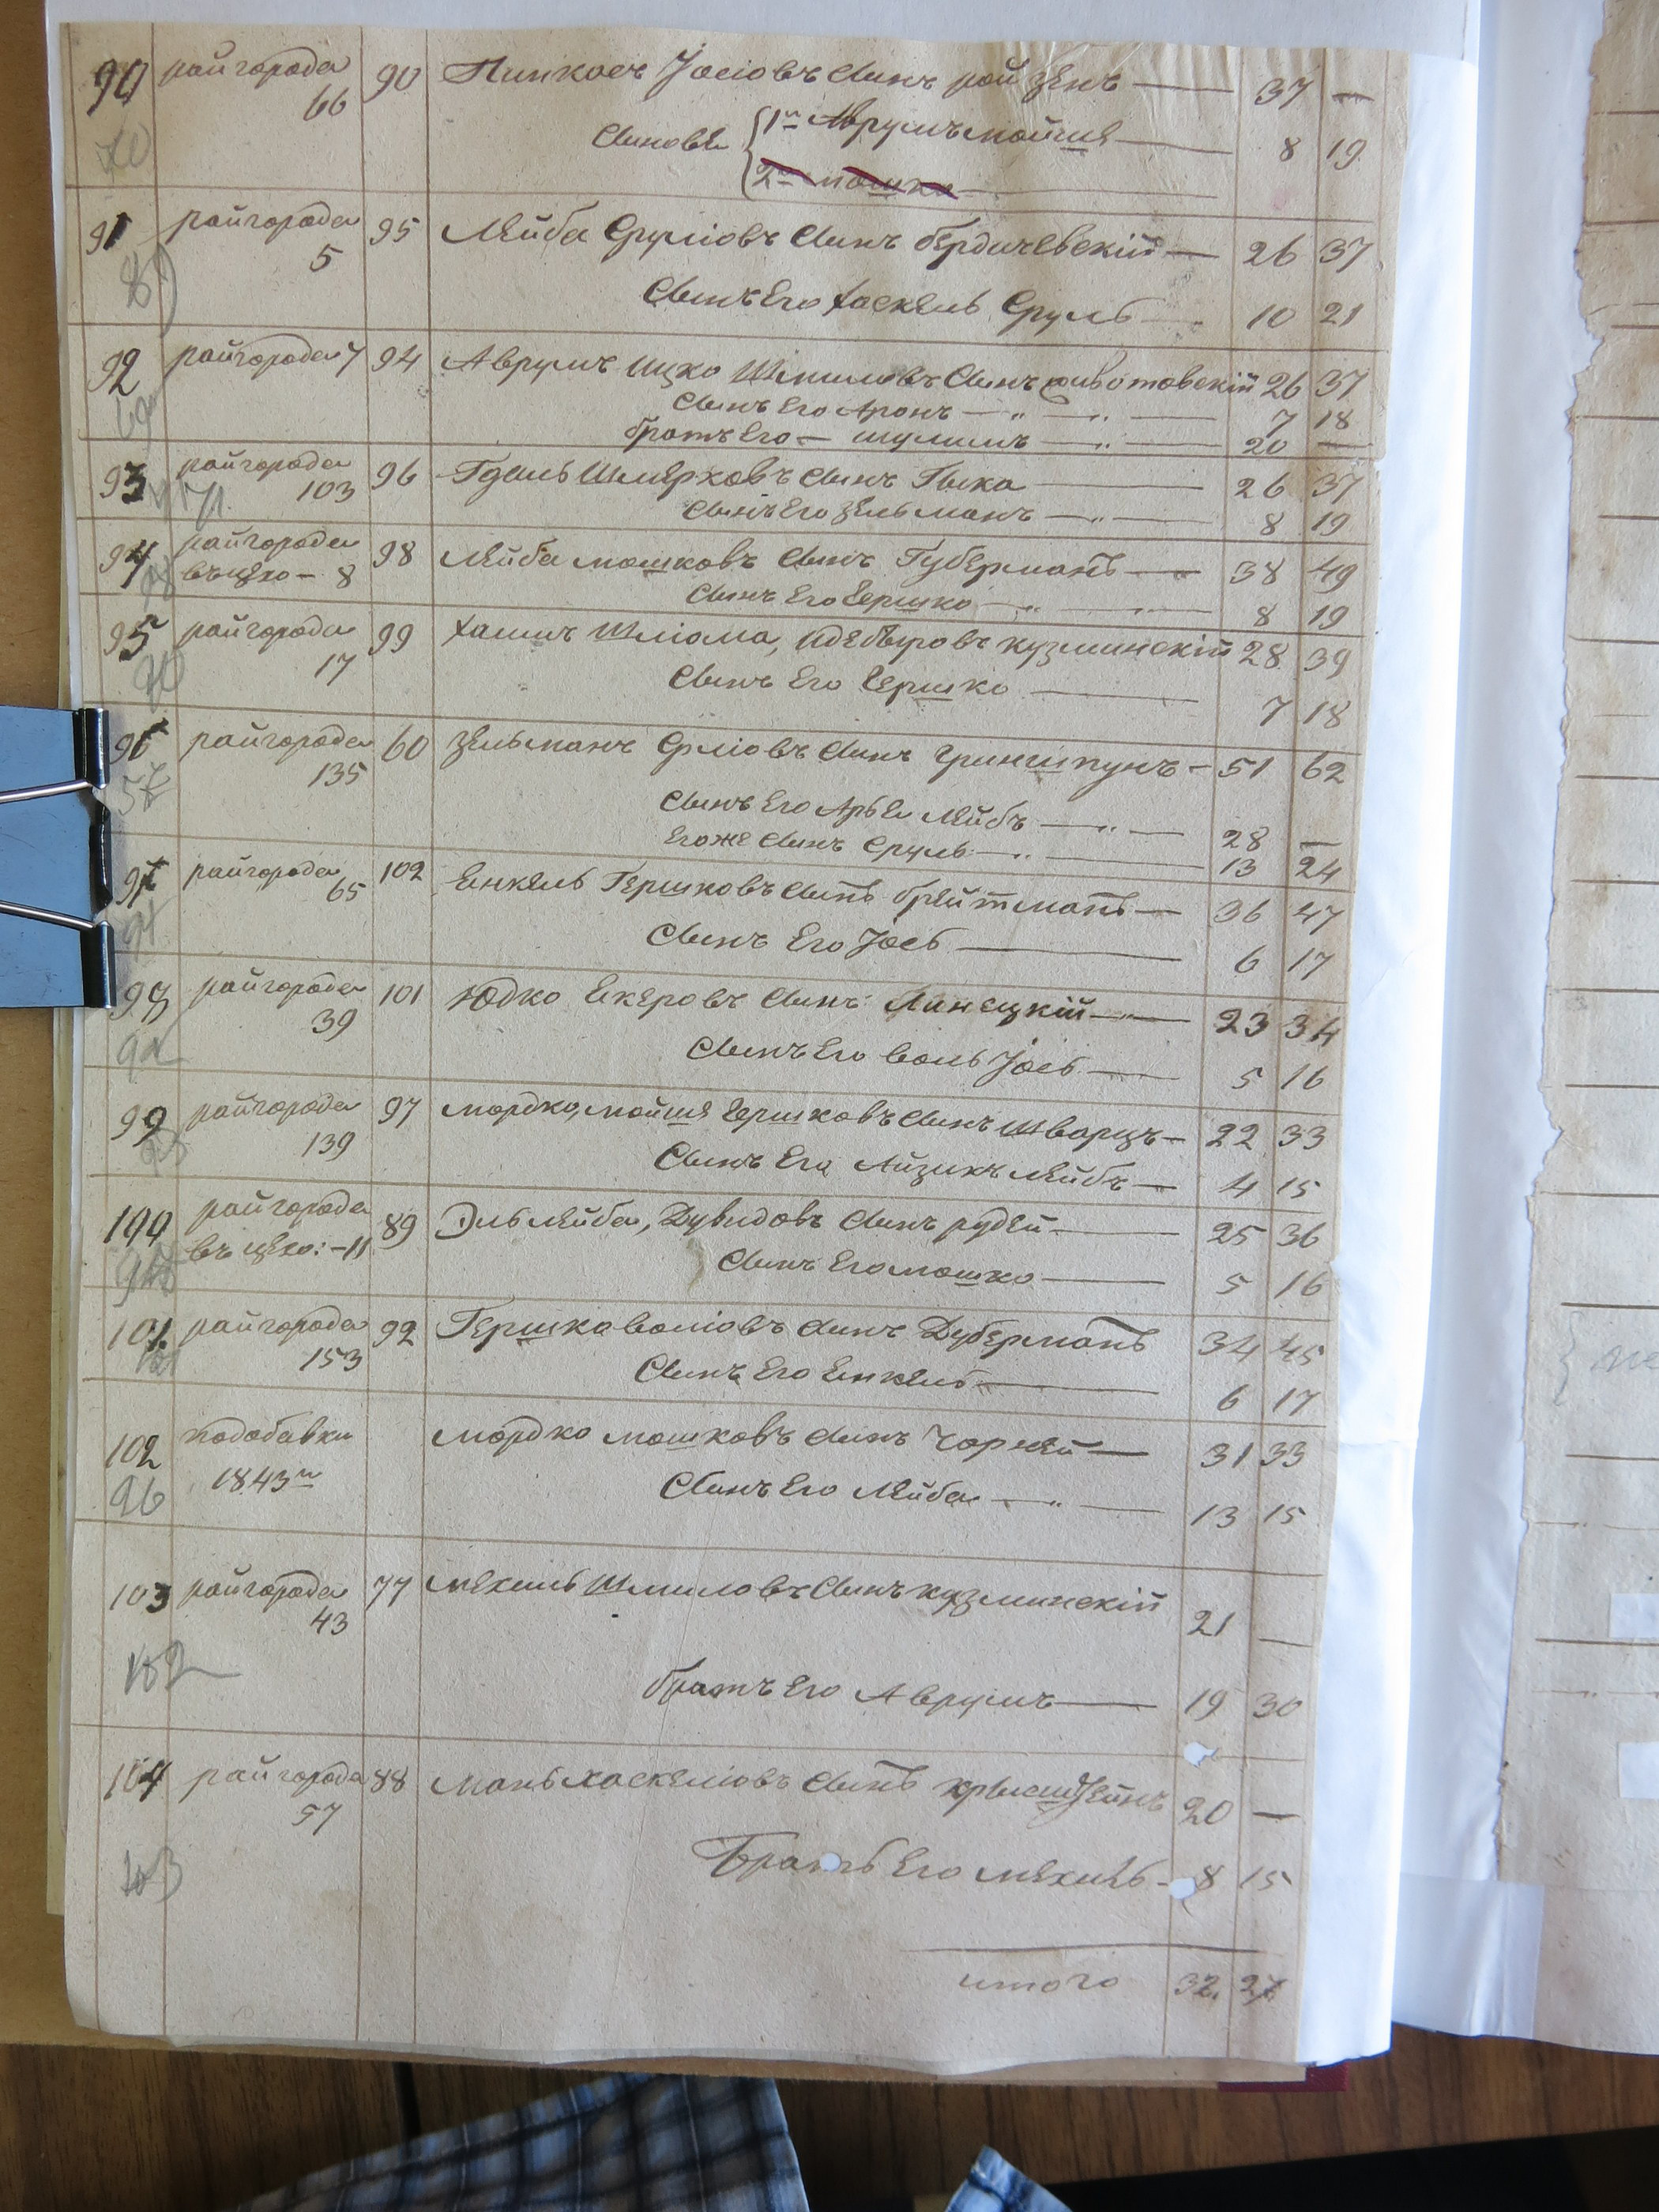 90 райгорода 90 Пинкась Іосіовъ сынъ ройзенъ — 37 —
66
сыновья 1й Аврумъ мойшя — 8 19
70
2й мошко —
91 райгорода 95 Лейба Сруліовъ сынъ бердичевскій — 26 37
5
сынъ Его Хаскель Сруль — 10 21
92 райгорода 7 94 Аврумъ Ицко Шмиловъ сынъ животовскій 26 37
сынъ Его Аронъ — 7 18
69
братъ Его — шулимъ — 20 —
93 райгорода 96 Гдаль Шмерковъ сынъ Гыка — 26 37
103
сынъ Его зельманъ — 8 19
94 райгорода 98 Лейба мошковъ сынъ Губерманъ — 38 49
въ цехо — 8
сынъ Его Гершко — 8 19
95 райгорода 99 Хаимъ Шліома, Лейбовъ кузминскій 28 39
17
сынъ Его Гершко — 7 18
96 райгорода 60 зельманъ Срліовъ сынъ Гриншпунъ — 51 62
135
57
сынъ Его Арья Лейбъ — 28 —
Егоже сынъ Сруль — 13 24
97 райгорода 102 Енкель Гершковъ сынъ брейтманъ — 36 47
65
91
сынъ Его Іось — 6 17
98 райгорода 101 Юдко Екеровъ сынъ Линецкій — 23 34
39
92
сынъ Его воль Іось — 5 16
99 райгорода 97 мордко, мойшя Гершковъ сынъ шварцъ — 22 33
139
сынъ Его Айзикъ Лейбъ — 4 15
100 райгорода 89 Эль Лейба, Дувидовъ сынъ рудей — 25 36
въ цехо: — 11
сынъ Его мошко — 5 16
101 райгорода 92 Гершко воліовъ сынъ Дуберманъ 34 45
153
сынъ Его Енкель — 6 17
102 подобавки мордко мошковъ сынъ Чорней — 31 33
1843го
96
сынъ Его Лейба — 13 15
103 райгорода 77 мехель Шмиловъ сынъ кузминскій 21 —
43
102
братъ Его Аврумъ — 19 30
104 райгорода 88 мань хаскеліовъ сынъ крыштейнъ 20 —
57
103
Братъ Его мехель — 8 15
итого 32. 27